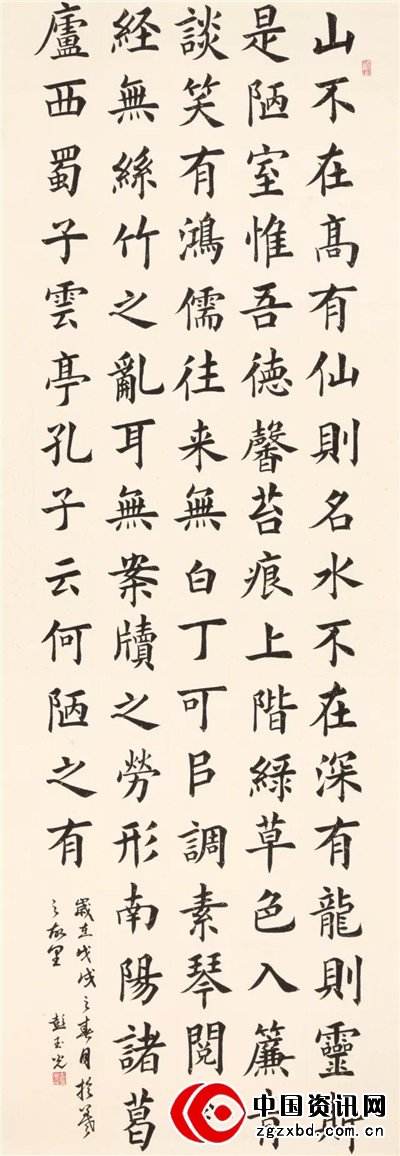 山不在髙有仙則名水不在深有龍則靈斯
是陋室惟吾徳馨苔痕上階綠草色入簾青
談笑有鴻儒往来無白丁可㠯調素琴閱
経無絲竹之亂耳無案牘之勞形南陽諸葛
廬西蜀子雲亭孔子云何陋之有
歲在戊戌之春月於羲
之故里 彭玉光
中国资讯网
zgzxbd.com.cn